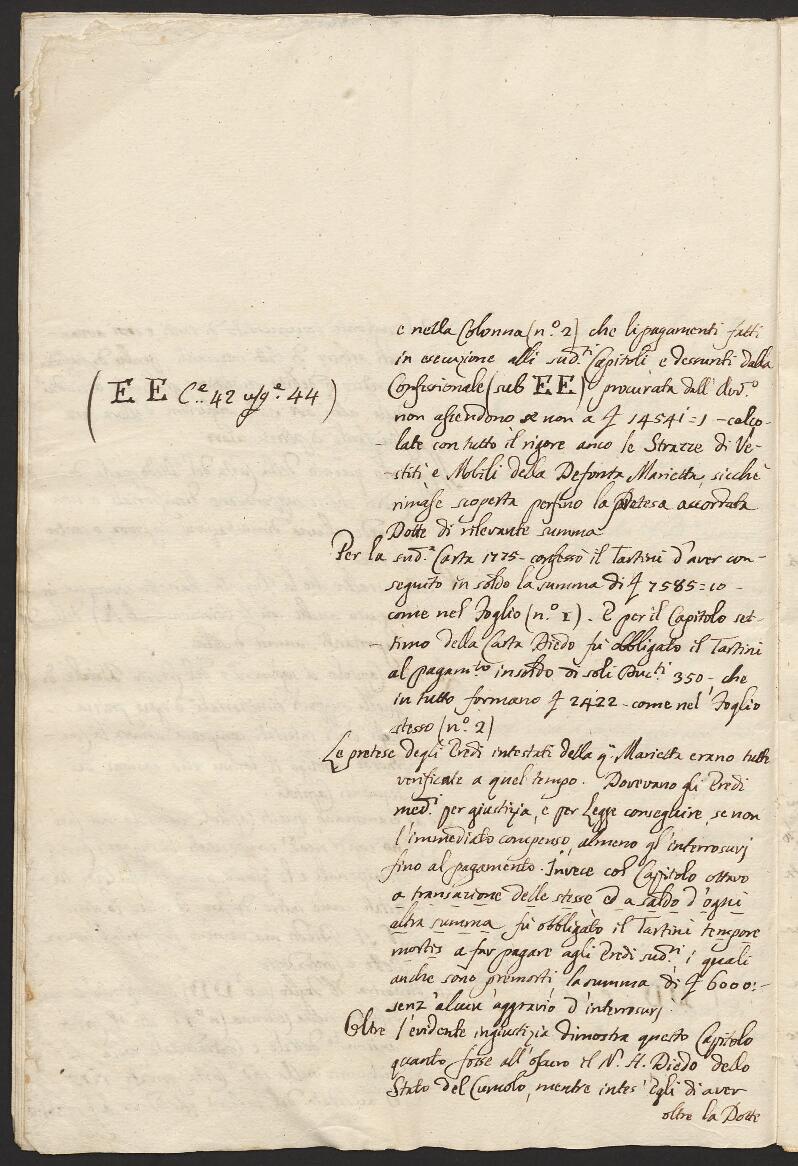 e nella Colonna (n.º 2) che li pagamenti fatti
in esecuzione alli sud.ti Capitoli e dessunti dalla
(EE C.e 42 usq.e 44)
Confessionale (sub EE) procurata dall'
non ascendono se non a 14541:1 - calco-
late con tutto il rigore anco le Strazze di Ve-
stiti e Mobili della Defonta Marietta, sicchè
rimase scoperta perfino la pretesa accordata
Dotte di rilevante summa
Per la sud.a Carta 1775 - confessò il Tartini d'aver con-
seguito in soldo la summa di 7585=10 -
come nel Foglio (n.º 1). E per il Capitolo set-
timo della Carta Diedo fù obbligato il Tartini
al pagam.to in soldo di soli Duc.ti 350 - che
in tutto formano 2422 - come nel Foglio
stesso (n.º 2)
Le pretese degli Eredi intestati della q.m Marietta erano tutte
verificate a quel tempo. Dovevano gli Eredi
med.i per giustizia, e per Legge conseguire, se non
l'immediato compenso, almeno gl'interrosurj
fino al pagamento. Invece col Capitolo ottavo
a transazione delle stesse ed a saldo d'ogni
altra summa fù obbligato il Tartini tempore
mortis a far pagare agli Eredi sud.ti i quali
anche sono premorti la summa di 6000:-
senz'alcun'aggravio d'interrosurj.
Oltre l'evidente ingiustizia dimostra questo Capitolo
quanto fosse all'oscuro il N. H. Diedo dello
Stato del Cumolo, mentre intes'Egli di aver
oltre la Dotte